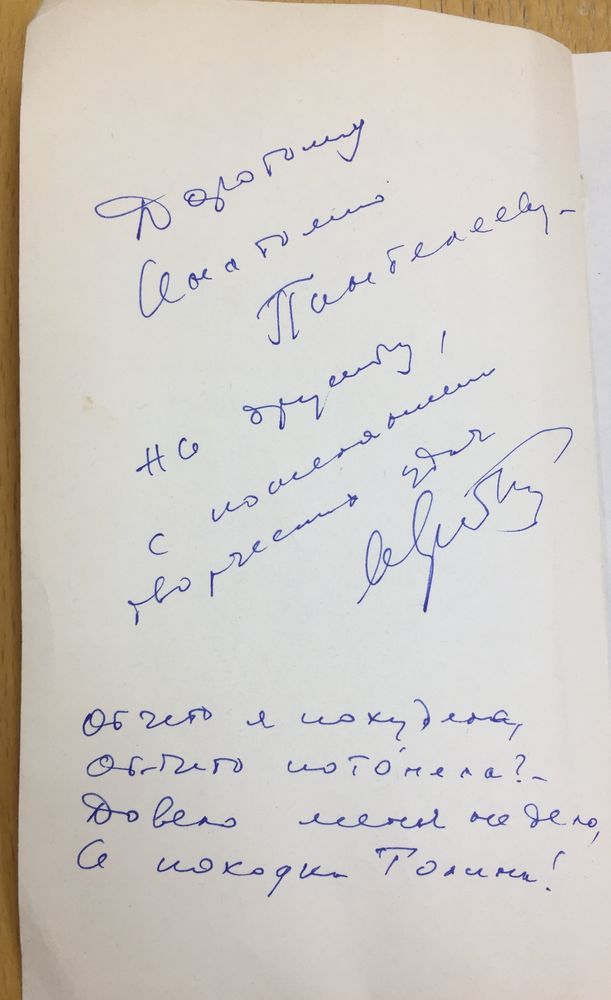 Дорогому
Анатолию
Пантелееву –
на дружбу,
с пожеланием
творческих удач

Отчего я похудела,
От-чего пото́нела? –
Довело меня не дело,
А походка Толина!